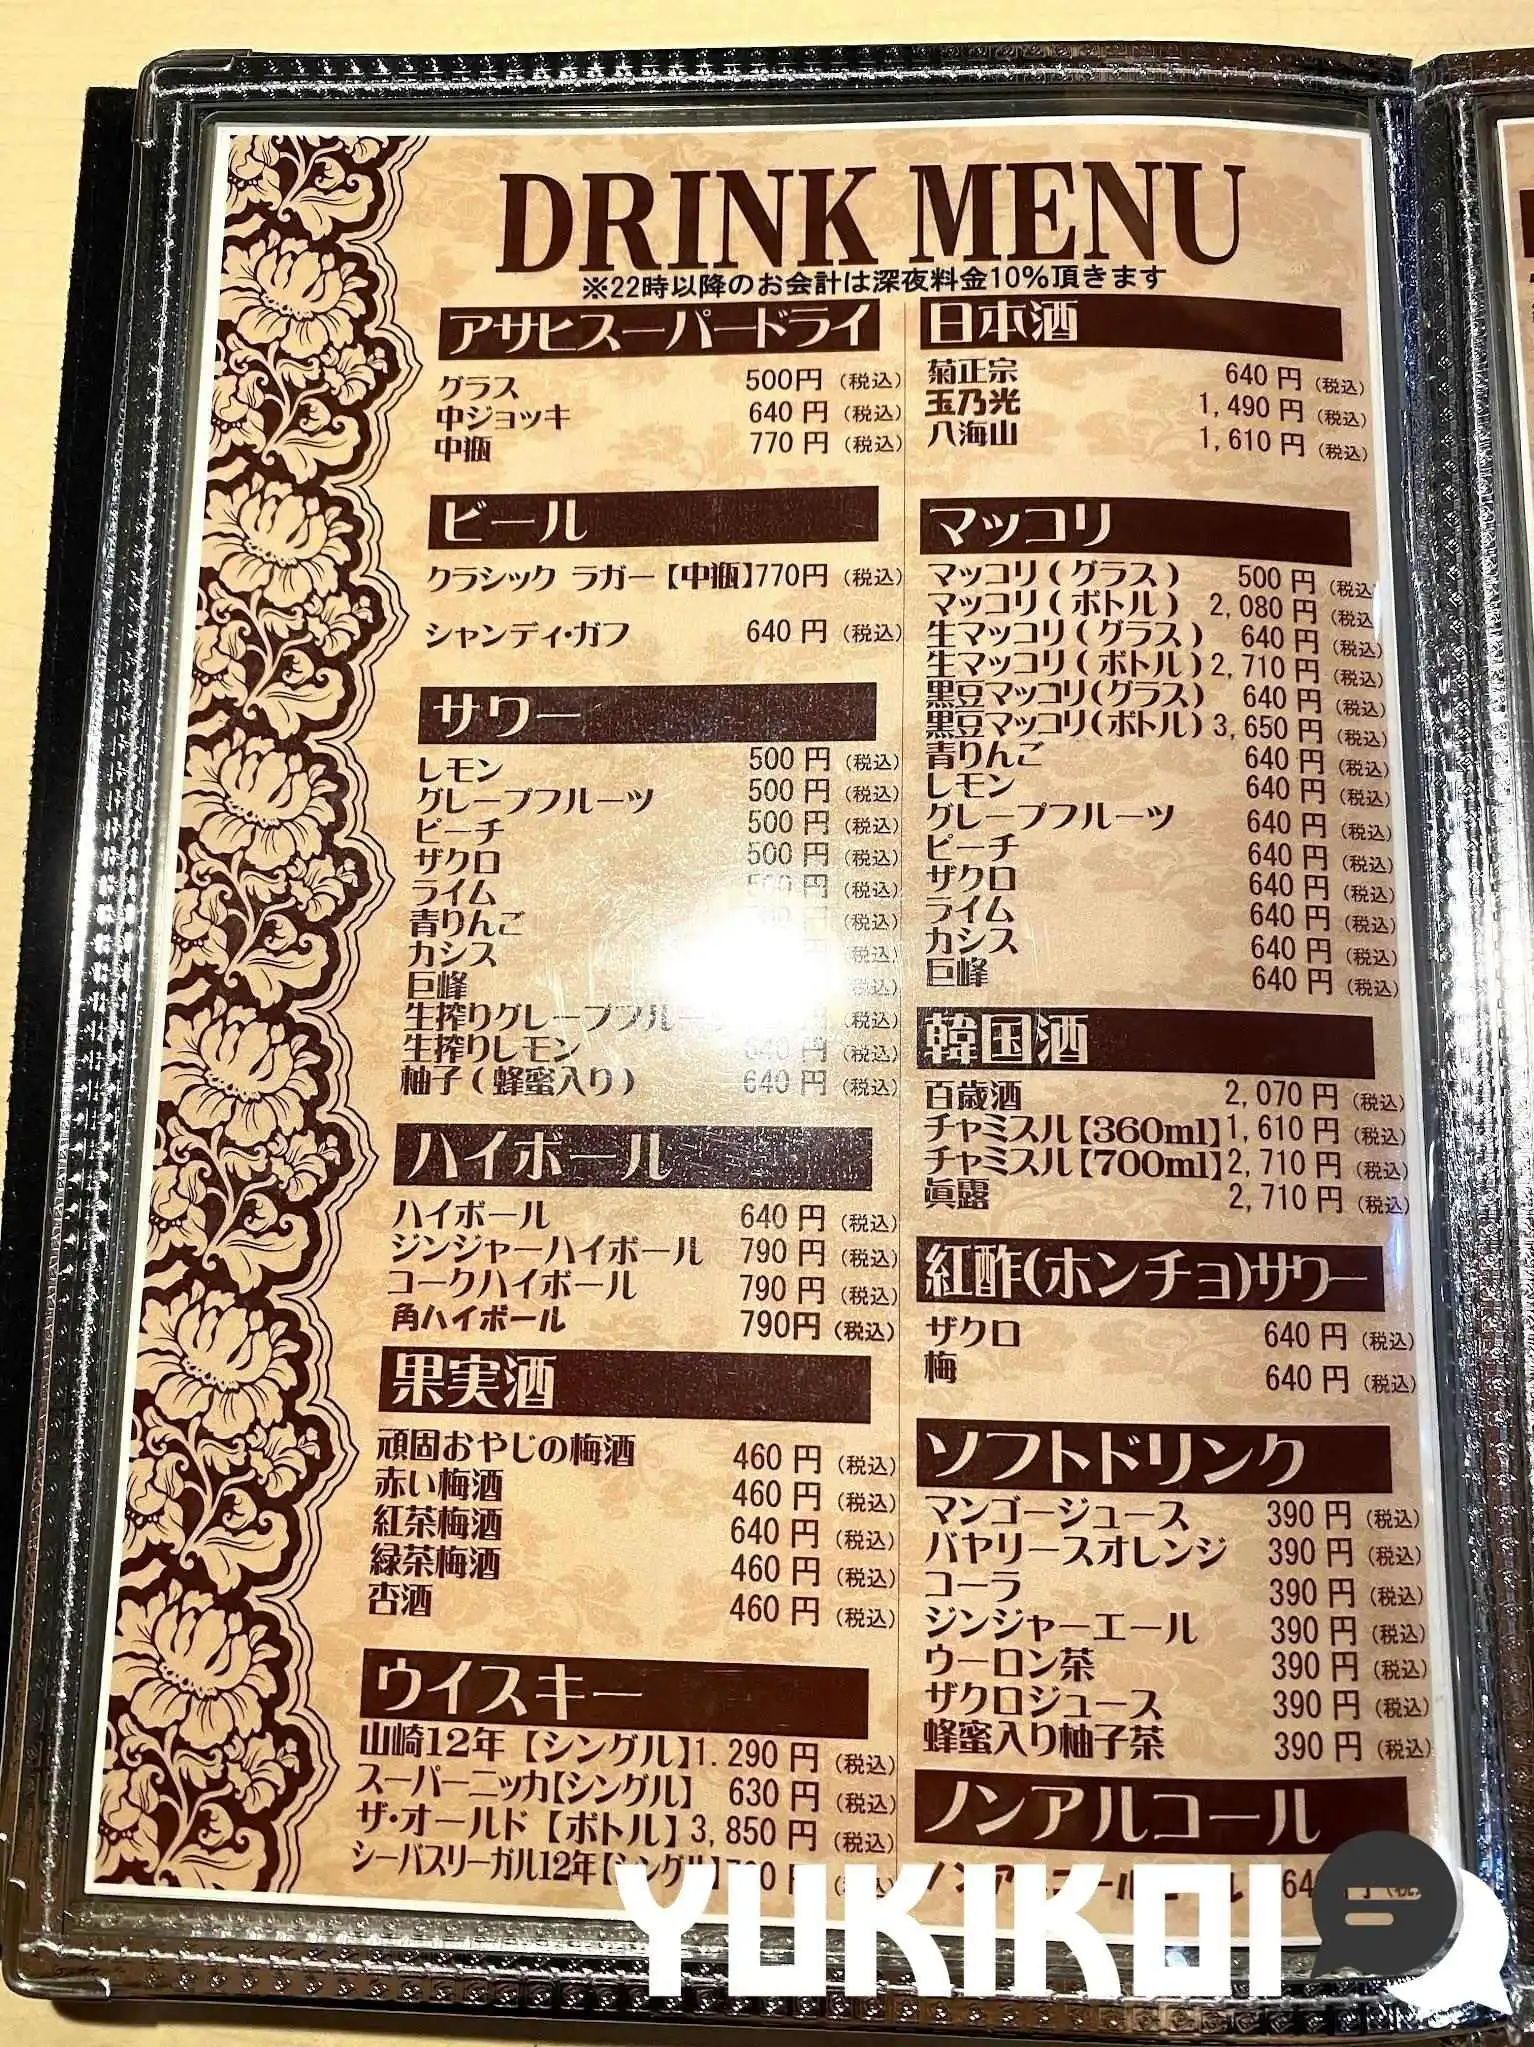 DRINK MENU
※22時以降のお会計は深夜料金10%頂きます
アサヒスーパードライ
グラス 500円（税込）
中ジョッキ 640円（税込）
中瓶 770円（税込）
ビール
クラシック ラガー【中瓶】770円（税込）
シャンディ・ガフ 640円（税込）
サワー
レモン 500円（税込）
グレープフルーツ 500円（税込）
ピーチ 500円（税込）
ザクロ 500円（税込）
ライム 500円（税込）
青りんご （税込）
カシス （税込）
巨峰 （税込）
生搾りグレープフルー （税込）
生搾りレモン 640円（税込）
柚子（蜂蜜入り） 640円（税込）
ハイボール
ハイボール 640円（税込）
ジンジャーハイボール 790円（税込）
コークハイボール 790円（税込）
角ハイボール 790円（税込）
果実酒
頑固おやじの梅酒 460円（税込）
赤い梅酒 460円（税込）
紅茶梅酒 640円（税込）
緑茶梅酒 460円（税込）
杏酒 460円（税込）
ウイスキー
山崎12年【シングル】1.290円（税込）
スーパーニッカ【シングル】 630円（税込）
ザ・オールド【ボトル】3,850円（税込）
シーバスリーガル12年【シングル】
日本酒
菊正宗 640円（税込）
玉乃光 1,490円（税込）
八海山 1,610円（税込）
マッコリ
マッコリ（グラス） 500円（税込
マッコリ（ボトル） 2,080円（税込
生マッコリ（グラス） 640円（税込）
生マッコリ（ボトル）2,710円（税込）
黒豆マッコリ（グラス） 640円（税込）
黒豆マッコリ（ボトル）3,650円（税込）
青りんご 640円（税込）
レモン 640円（税込）
グレープフルーツ 640円（税込）
ピーチ 640円（税込）
ザクロ 640円（税込）
ライム 640円（税込）
カシス 640円（税込）
巨峰 640円（税込）
韓国酒
百歳酒 2,070円（税込）
チャミスル【360ml】1,610円（税込）
チャミスル【700ml】2,710円（税込）
眞露 2,710円（税込）
紅酢(ホンチョ)サワー
ザクロ 640円（税込）
梅 640円（税込）
ソフトドリンク
マンゴージュース 390円（税込）
バヤリースオレンジ 390円（税込）
コーラ 390円（税込）
ジンジャーエール 390円（税込）
ウーロン茶 390円（税込）
ザクロジュース 390円（税込）
蜂蜜入り柚子茶 390円（税込）
ノンアルコール
YUKIKOI